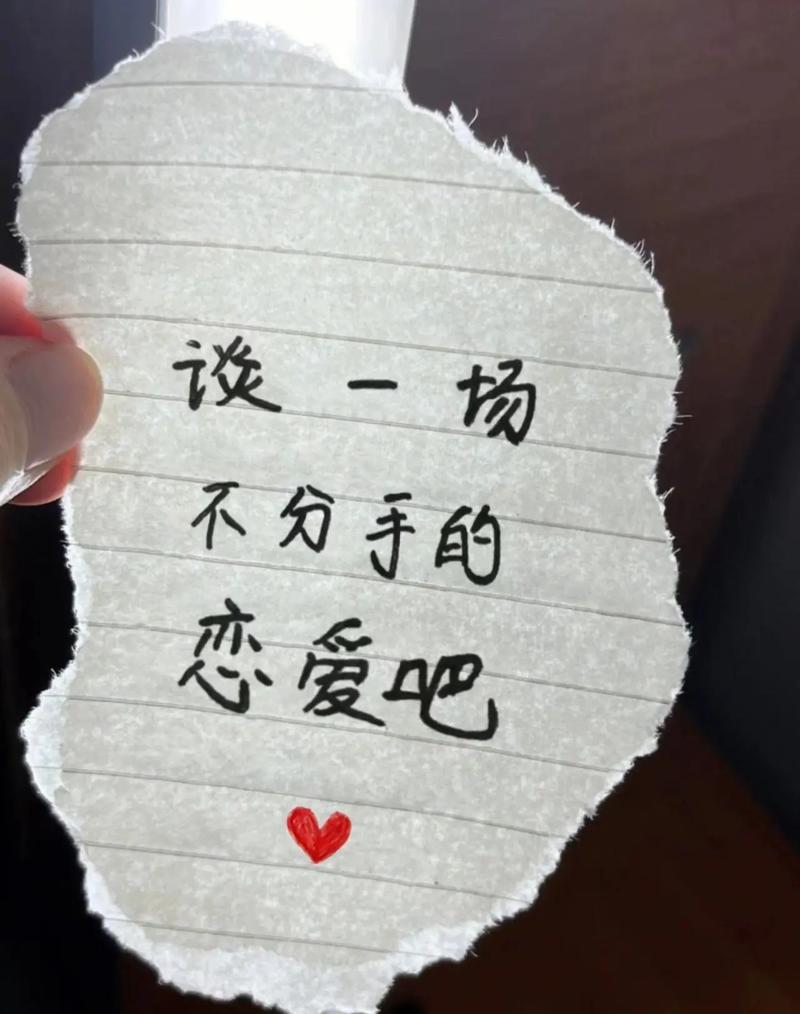 谈一场
不分手的
恋爱吧